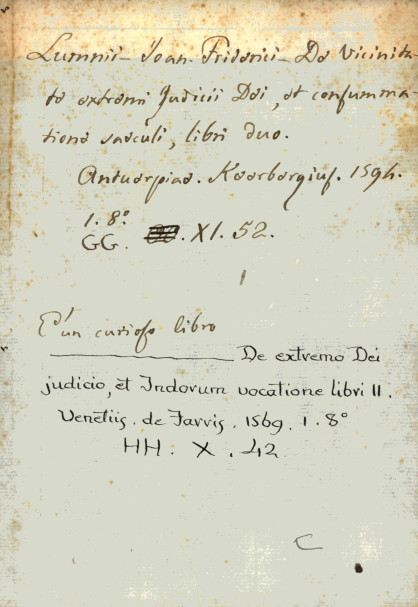 Lumnii - Joan. Friderici - De Vicinita-
te extremi Judicii Dei, et consumma-
tione saeculi, libri duo.
Antuerpiae. Keerbergius. 1594.
1. 8.°
GG. XI. 52.
E' un curioso libro
De extremo Dei
judicio, et Indorum vocatione libri II.
Venetiis. de Farris. 1569. 1. 8°
HH. X. 42
C